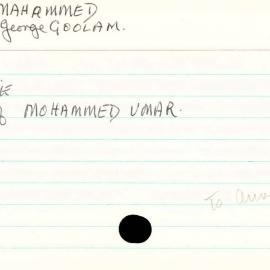 MAHAMMED
George GOOLAM.
of MOHAMMED UMAR.
To